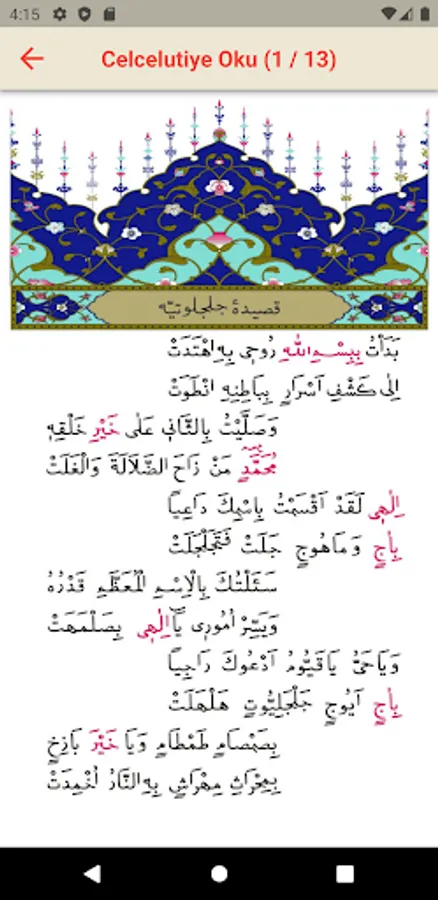 4:15
Celcelutiye Oku (1 / 13)
قصيدۀ جلجلوتيّه
بَدَأْتُ بِبِسْمِ اللّٰهِ رُوحِى بِهِ اهْتَدَتْ
اِلٰى كَشْفِ اَسْرَارٍ بِبَاطِنِهِ انْطَوَتْ
وَصَلَّيْتُ بِالثَّانِى عَلٰى خَيْرِ خَلْقِهِ
مُحَمَّدٍ مَنْ زَاحَ الضَّلَالَةَ وَالْغَلَتْ
اِلٰهِى لَقَدْ اَقْسَمْتُ بِاسْمِكَ دَاعِيًا
بِاٰجٍ وَمَاهُوجٍ جَلَتْ فَتَجَلْجَلَتْ
سَئَلْتُكَ بِالْاِسْمِ الْمُعَظَّمِ قَدْرُهُ
وَيَسِّرْ اُمُورِى يَٓا اِلٰهِى بِصَلْمَهَتْ
وَيَاحَىُّ يَاقَيُّومُ اَدْعُوكَ رَاجِيًا
بِاٰجٍ اَيُوجٍ جَلْجَلِيُّوتٍ هَلْهَلَتْ
بِصَمْصَامٍ طَمْطَامٍ وَيَا خَيْرَ بَازِخٍ
بِمِحْرَاثِ مِهْرَاشٍ بِهِ النَّارُ اُخْمِدَتْ